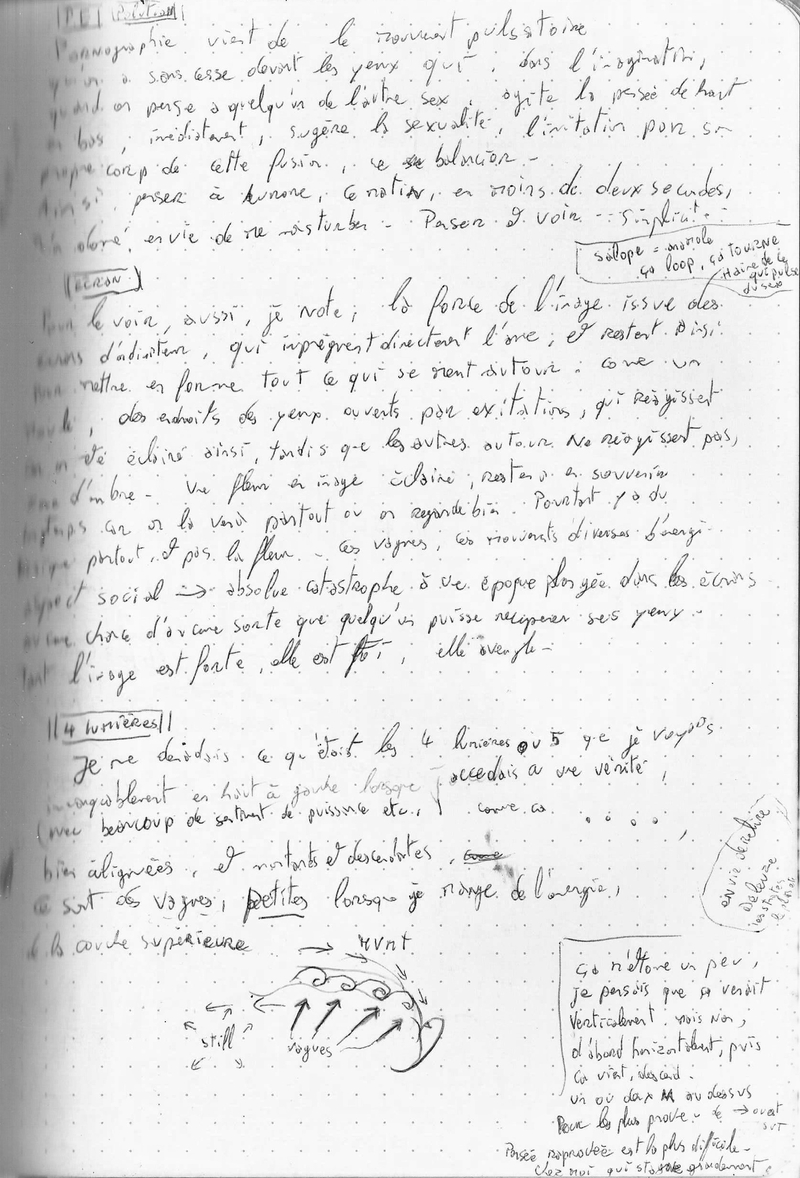 Pornographie vient de le mouvement pulsatoire
qu'on a sans cesse devant les yeux qui, dans l'imagination,
quand on pense a quelqu'un de l'autre sex, agite la pensée de haut
en bas, imédiatement, sugère la sexualité, l'imitation par sn
propre corp de cette fusion, ce balancier -
Ainsi, penser à Aurore, ce matin, en moins de deux secondes,
m'a doné envie de me masturber - Penser et voir
salope =
ça loop, ça tourne
qui pulse
ECRAN
Pour le voir, aussi, je note, la force de l'image issue des
écrans d'ordinateur, qui imprègnent directement l'ame, et restent ainsi
pour mettre en forme tout ce qui se ment autour. come un
moule, des endroits des yeux ouverts par exitations, qui réagissent
on été éclairé ainsi, tandis que les autres autour ne réagissent pas,
d'ombre - une fleur en image éclairé, restera en souvenir
longtemps car on la verra partout où on regarde bien. Pourtant y a du
partout, et pas la fleur - ces vagues, ces mouvements diverses d'énergi
aspect social → absolue catastrophe à une époque plongée dans les écrans
aucune chance d'aucune sorte que quelqu'un puisse récupérer ses yeux -
tant l'image est forte, elle est, elle aveugle -
4 lumières
Je me demandais ce qu'étaient les 4 lumières ou 5 que je voyais
en haut à gauche lorsque j'accedais a une vérité,
(avec beaucoup de sentiment de puissance etc., comme ca . . . . . ,
bien alignées, et montantes et descendantes,
ce sont des vagues, petites lorsque je mange de l'énergie,
de la couche supérieure
→ MVMT
still
vagues
envie de relire
Deleuze
ça m'étone un peu,
je pensais que ça venait
verticalement. mais non,
d'abord horizontalement, puis
ça vient, descend.
un ou deux M au dessus
Pour les plus proche -
Pensée raprochée est la plus difficile -
chez moi qui stagne grandement